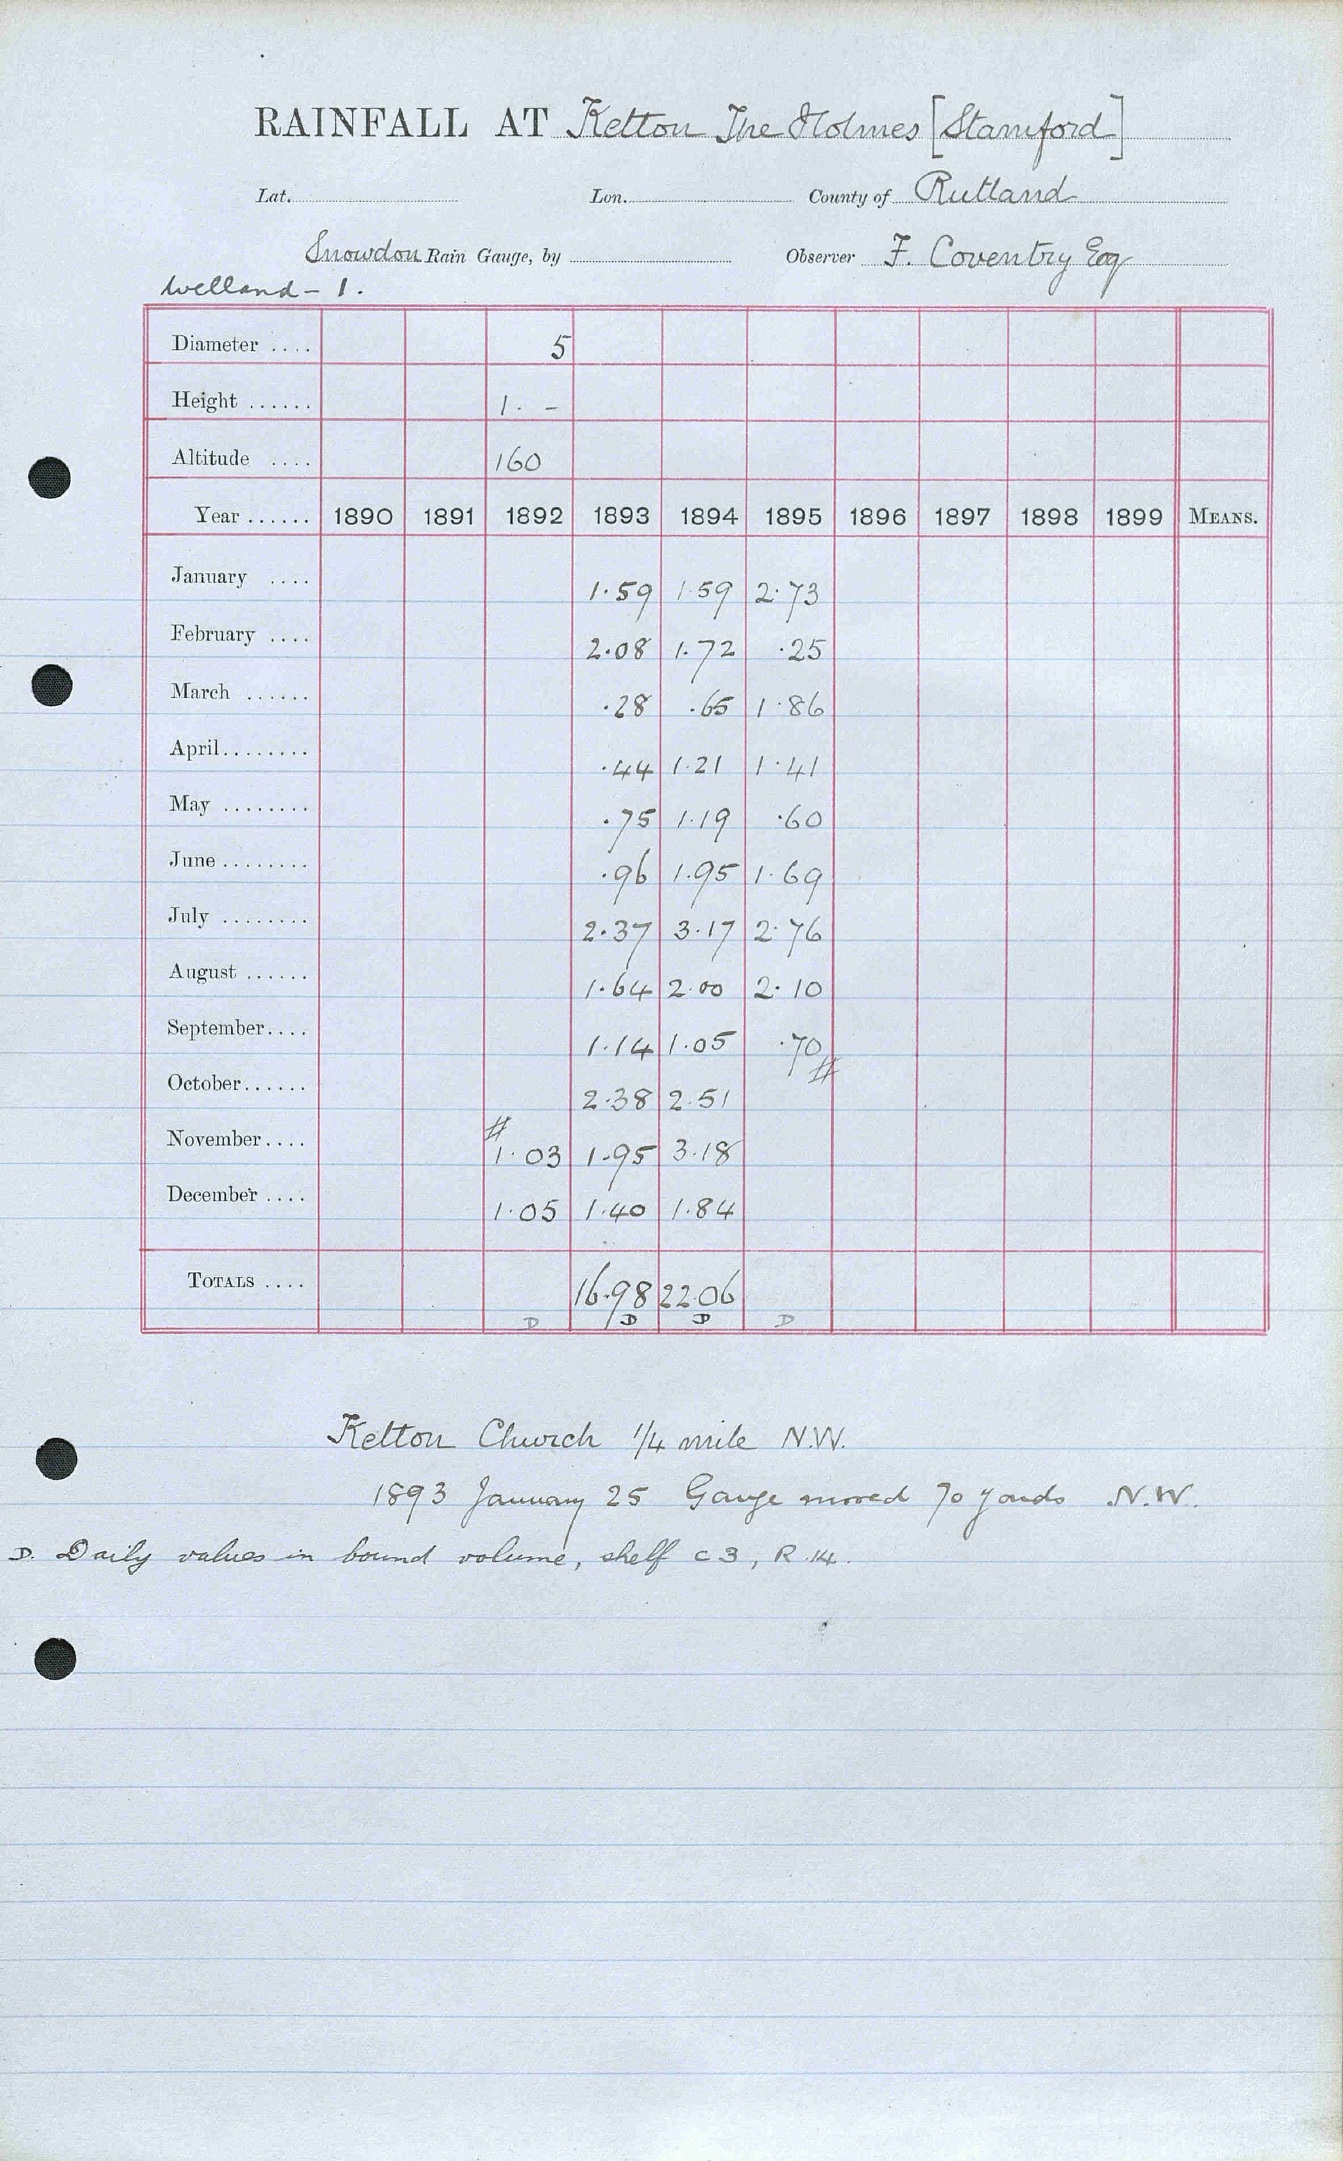 RAINFALL AT Ketton The Holmes [Stamford]
Lat. Lon. County of Rutland
Snowdon Rain Gauge, by Observer F. Coventry Esq
Welland - 1.
Diameter .... 5
Height ...... 1. -
Altitude .... 160
Year ...... 1890 1891 1892 1893 1894 1895 1896 1897 1898 1899 MEANS.
January .... 1.59 1.59 2.73
February .... 2.08 1.72 .25
March ...... .28 .65 1.86
April........ .44 1.21 1.41
May ........ .75 1.19 .60
June ........ .96 1.95 1.69
July ........ 2.37 3.17 2.76
August ...... 1.64 2.00 2.10
September.... 1.14 1.05 .70 #
October...... 2.38 2.51
November.... # 1.03 1.95 3.18
December .... 1.05 1.40 1.84
TOTALS .... 16.98 22.06
D D D D
Ketton Church 1/4 mile N.W.
1893 January 25 Gauge moved 70 yards N.W.
D. Daily values in bound volume, shelf C3, R.14.